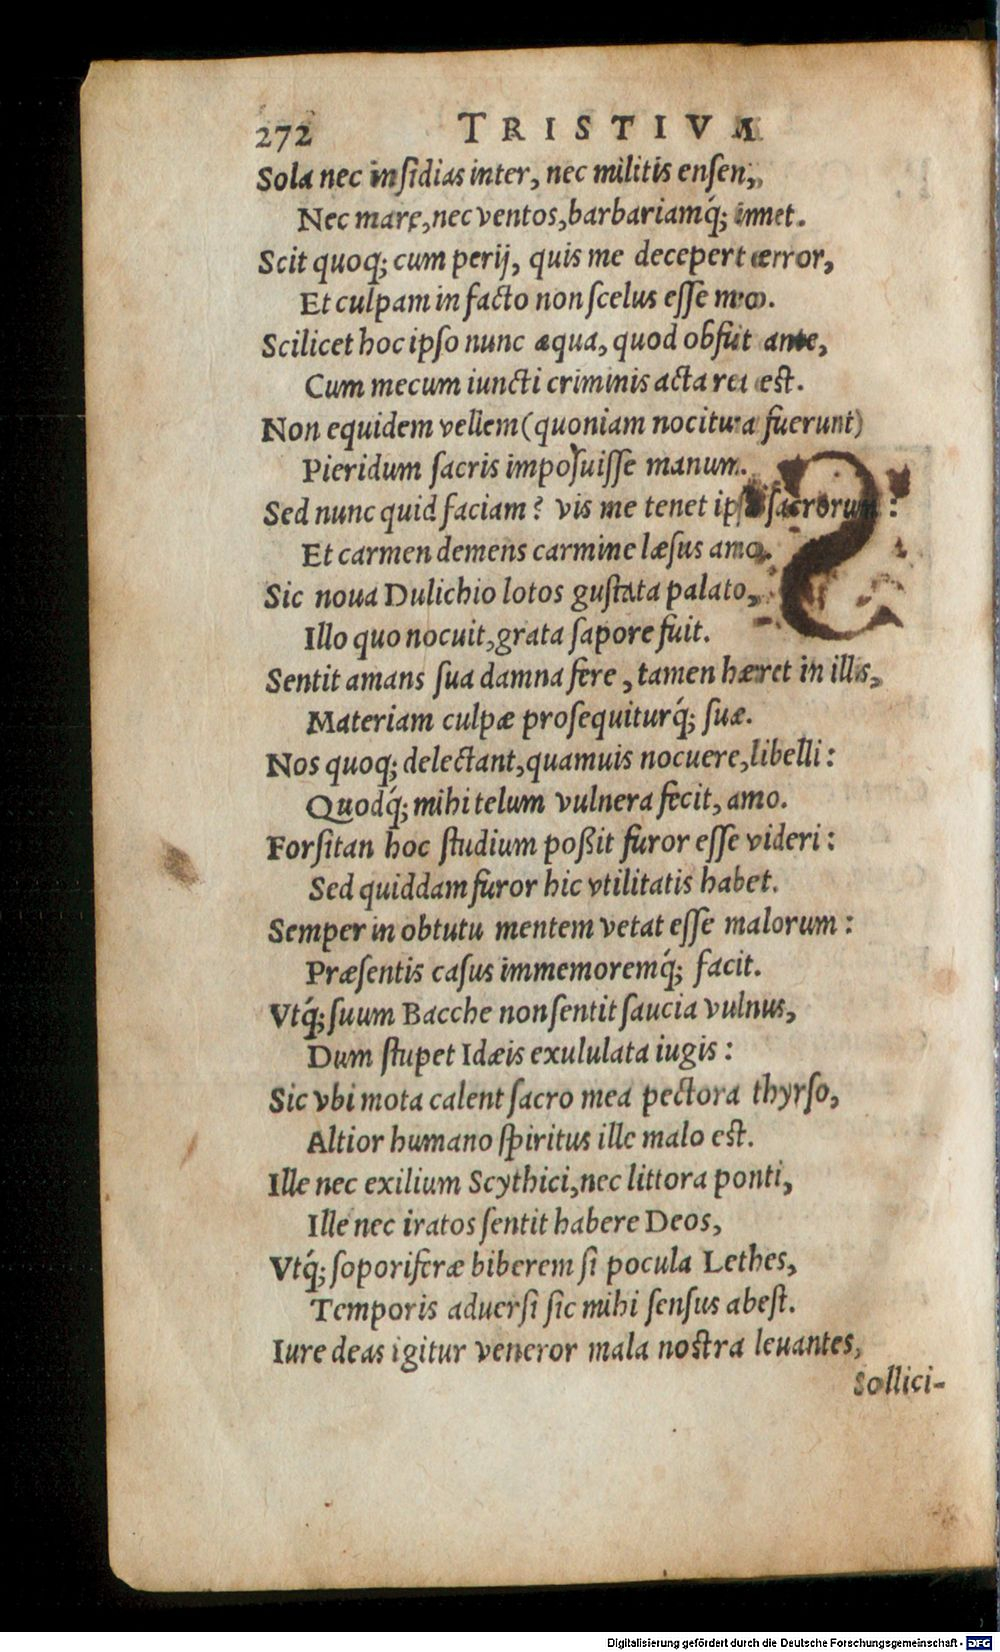 272 TRISTIVM
Sola nec inſidias inter, nec militis enſem,
Nec mare, nec ventos, barbariamq́; timet.
Scit quoq; cum perij, quis me deceperit error,
Et culpam in facto non ſcelus eſſe meo.
Scilicet hoc ipſo nunc æqua, quod obfuit ante,
Cum mecum iuncti criminis acta rea eſt.
Non equidem vellem (quoniam nocitura fuerunt)
Pieridum ſacris impoſuiſſe manum.
Sed nunc quid faciam? vis me tenet ipſa ſacrorum:
Et carmen demens carmine læſus amo.
Sic noua Dulichio lotos guſtata palato,
Illo quo nocuit, grata ſapore fuit.
Sentit amans ſua damna fere, tamen hæret in illis,
Materiam culpæ proſequiturq́; ſuæ.
Nos quoq; delectant, quamuis nocuere, libelli:
Quodq́; mihi telum vulnera fecit, amo.
Forſitan hoc ſtudium poßit furor eſſe videri:
Sed quiddam furor hic vtilitatis habet.
Semper in obtutu mentem vetat eſſe malorum:
Præſentis caſus immemoremq́; facit.
Vtq́; ſuum Bacche non ſentit ſaucia vulnus,
Dum ſtupet Idæis exululata iugis:
Sic vbi mota calent ſacro mea pectora thyrſo,
Altior humano ſpiritus ille malo eſt.
Ille nec exilium Scythici, nec littora ponti,
Ille nec iratos ſentit habere Deos,
Vtq́; ſoporiferæ biberem ſi pocula Lethes,
Temporis aduerſi ſic mihi ſenſus abeſt.
Iure deas igitur veneror mala noſtra leuantes,
Sollici-
Digitalisierung gefördert durch die Deutsche Forschungsgemeinschaft - DFG